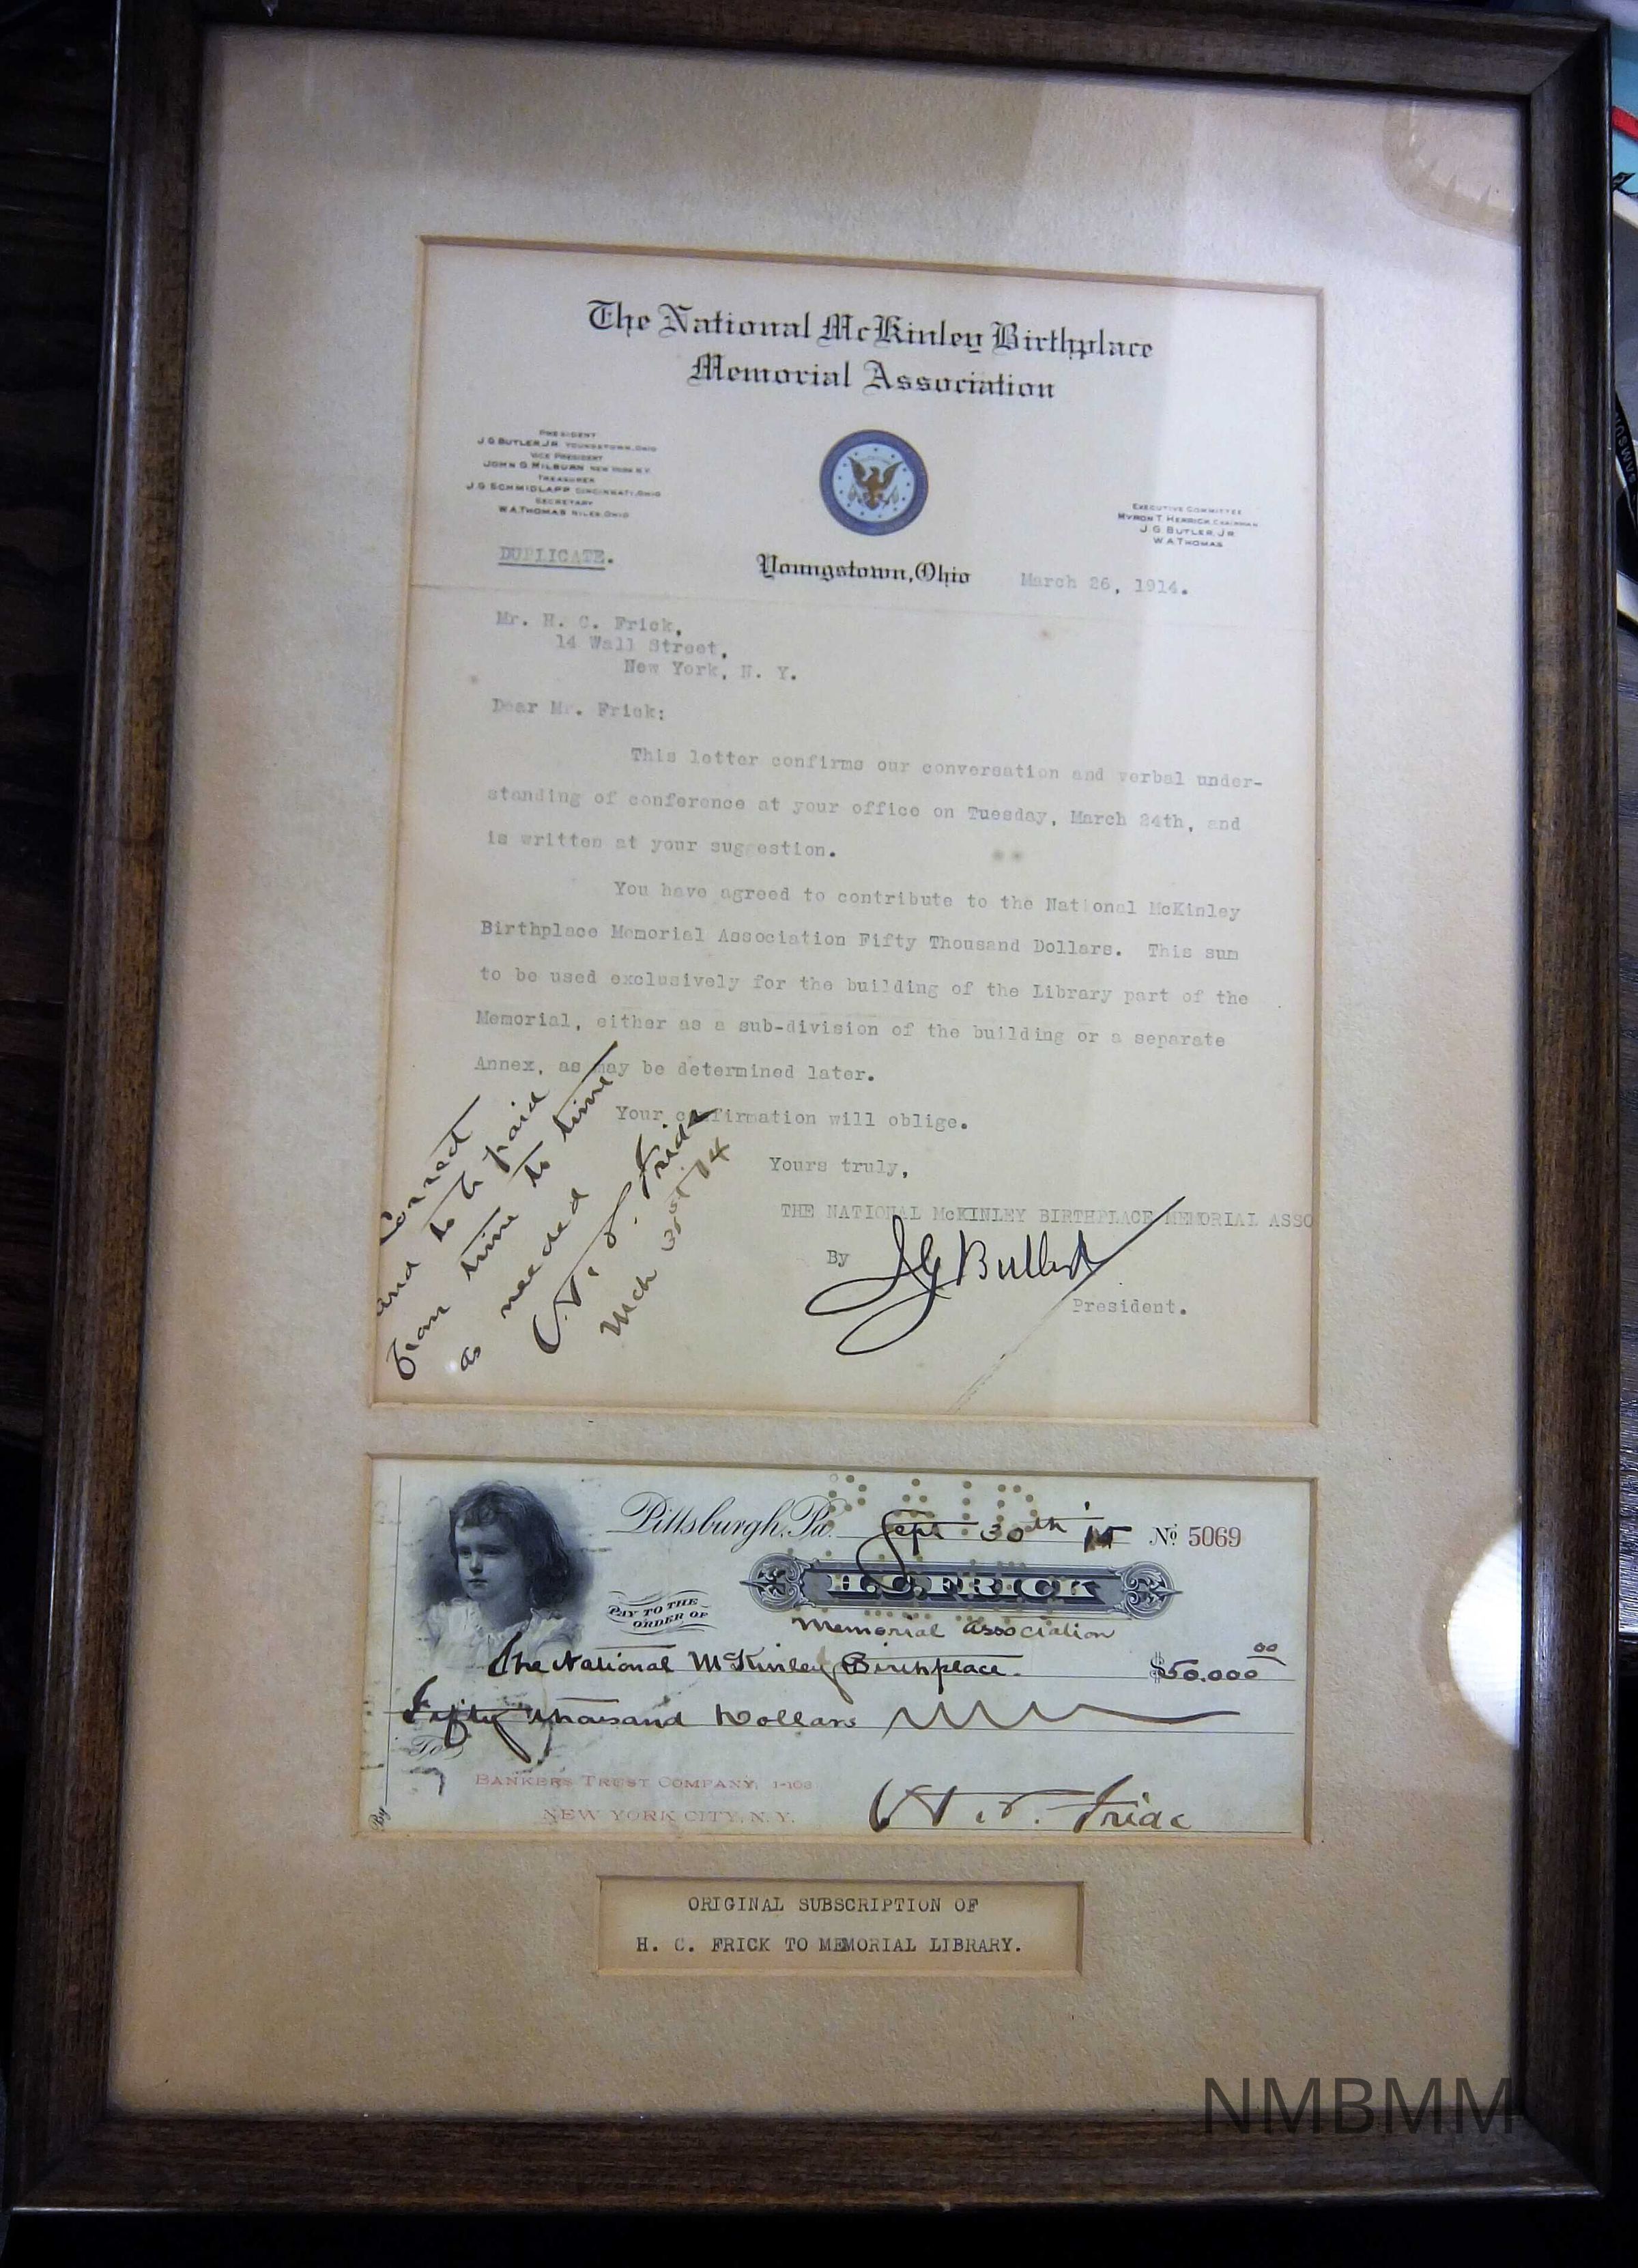 The National McKinley Birthplace
Memorial Association
PRESIDENT
J.G. BUTLER, JR. YOUNGSTOWN, OHIO
VICE PRESIDENT
JOHN G. MILBURN NEW YORK N.Y.
TREASURER
J.G. SCHMIDLAPP CINCINNATI, OHIO
SECRETARY
W.A. THOMAS NILES, OHIO
EXECUTIVE COMMITTEE
MYRON T. HERRICK, CHAIRMAN
J.G. BUTLER, JR.
W.A. THOMAS
DUPLICATE.
Youngstown, Ohio March 26, 1914.
Mr. H. C. Frick,
14 Wall Street,
New York, N. Y.
Dear Mr. Frick:
This letter confirms our conversation and verbal under-
standing of conference at your office on Tuesday, March 24th, and
is written at your suggestion.
You have agreed to contribute to the National McKinley
Birthplace Memorial Association Fifty Thousand Dollars. This sum
to be used exclusively for the building of the Library part of the
Memorial, either as a sub-division of the building or a separate
Annex, as may be determined later.
Your confirmation will oblige.
Yours truly,
THE NATIONAL McKINLEY BIRTHPLACE MEMORIAL ASSO
By J G Butler Jr
President.
Correct
and to be paid
from time to time
as needed
H. C. Frick
Mch 31st/14
Pittsburgh, Pa. Sept 30th '15 No. 5069
H.C. FRICK
PAY TO THE
ORDER OF
Memorial Association
The National McKinley Birthplace $50.000 00
Fifty Thousand Dollars
To
BANKERS TRUST COMPANY, 1-103
NEW YORK CITY, N.Y.
H. C. Frick
By
ORIGINAL SUBSCRIPTION OF
H. C. FRICK TO MEMORIAL LIBRARY.
NMBMM
SAMSUNG